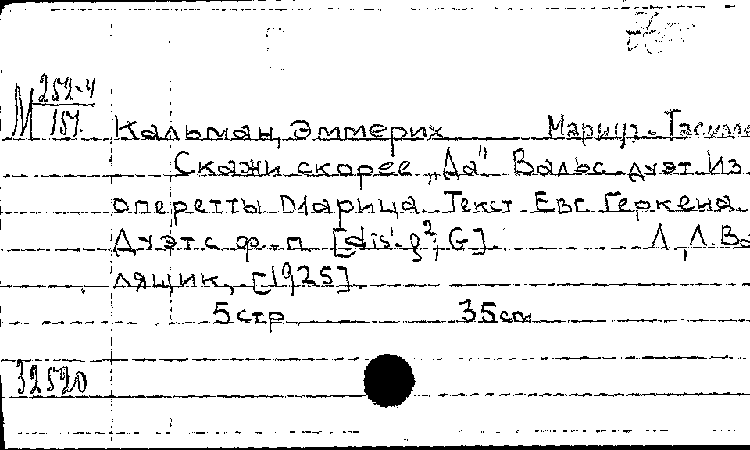 М 252-4
151
Кальман, Эммерих Мариця-
Скажи скорее "Да" Вальс-дуэт. Из
оперетты Марица. Текст Евг. Геркена.
Дуэт с ф.-п. [dis'-g², G]. Л., Л. Во
лящик, [1925].
5 стр 35 cm
32520